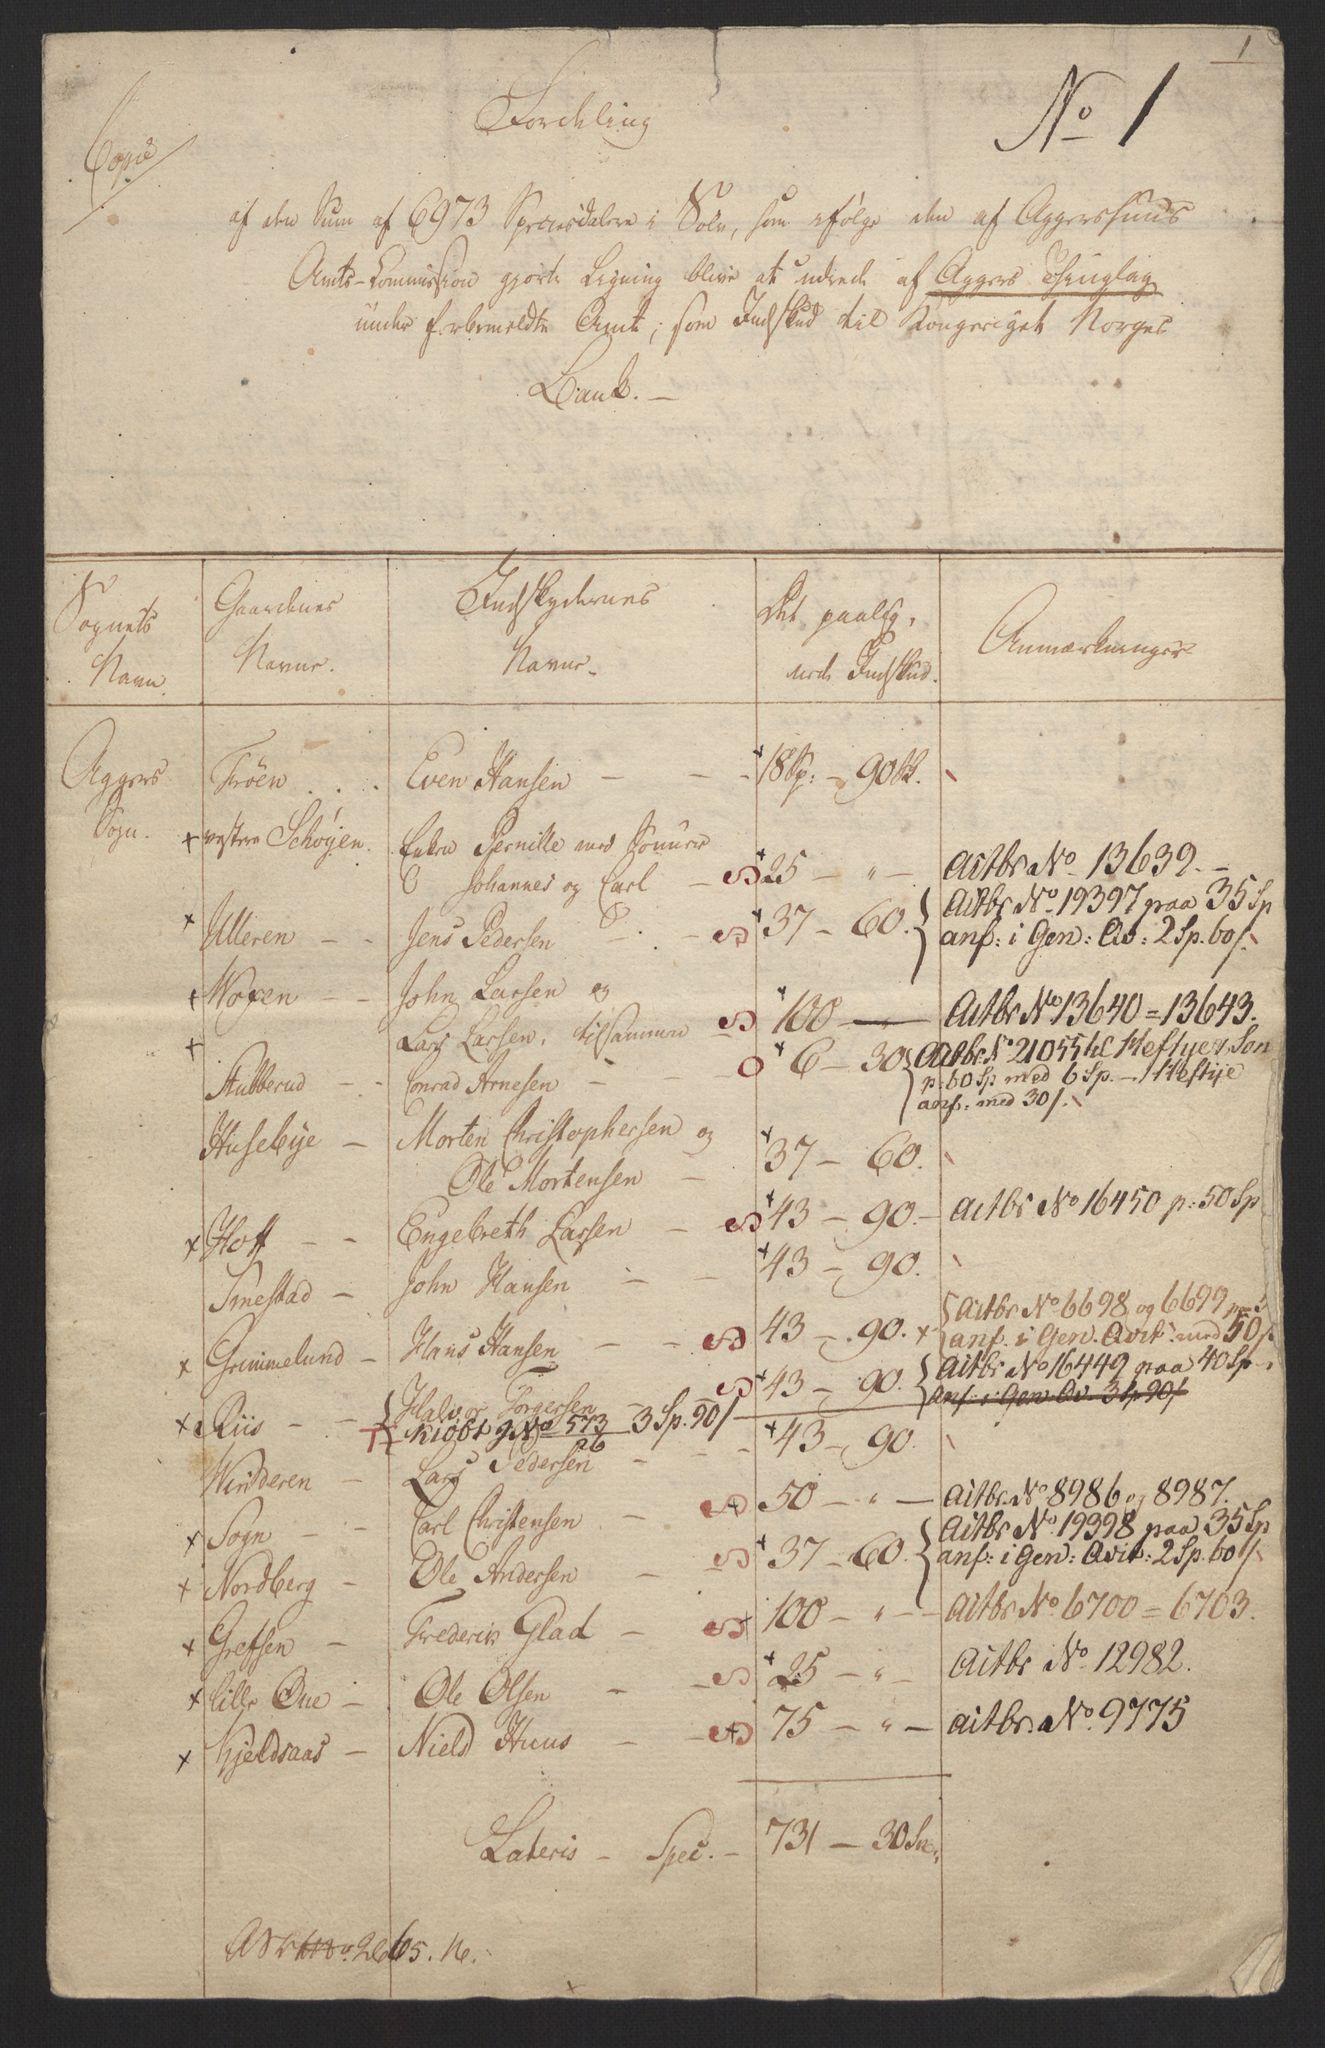 1
No 1
Copie
Fordeling
af den Sum af 6973 Speciesdalere i Sølv, som ifølge den af Aggershuus
Amts-Commission gjorte Ligning blive at udrede af Aggers Thinglag
under forbemeldte Amt; som Indskud til Kongeriget Norges
Bank. —
Sognets Navn. | Gaardenes Navne. | Indskydernes Navne. | Det paalig- nede Indskud. | Anmærkninger
Aggers Sogn. | Frøen . . . | Even Hansen — — | 18 Sp: — 90 ß.
vestre Schøyen. | Enken Pernille med Sønner
Johannes og Carl — | 25 — " — | Actbr No 13639. —
Ulleren — — | Jens Pedersen — . — | 37 — 60. | Actbr No 19397 paa 35 Sp
anf: i Gen: Qv: 2 Sp. 60 ß.
Woxen — — | John Larsen og
Lars Larsen, tilsammen | 100 — | Actbr No 13640 = 13643.
Stubberud — — | Conrad Arnesen — — | 6 — 30 | Actbr No 21055 til Heftye & Søn
p. 60 Sp med 6 Sp. — Heftye
anf: med 30 ß.
Husebye — | Morten Christophersen og
Ole Mortensen — | 37 — 60.
Hoff — — | Engebreth Larsen — | 43 — 90. — | Actbr No 16450 p: 50 Sp
Smestad — | John Hansen — — | 43 — 90.
Grimmelund — | Hans Hansen — — | 43 — 90. | Actbr No 6698 og 6699
anf. i Gen. Qvit: med 50 ß.
Riis — — | Halvor Torgersen — | 43 — 90. | Actbr No 16449 paa 40 Sp
anf: i Gen Qv. 3 Sp. 90 ß
Kiöbt g No 573 3 Sp. 90 ß
26
Winderen — | Lars Pedersen — — | 43 — 90.
Sogn — — | Carl Christensen — | 50 — " — | Actbr. No 8986 og 8987.
Nordberg — | Ole Andersen — | 37 — 60. | Actbr No 19398 paa 35 Sp
anf: i Gen: Qvit: 2 Sp. 60 ß.
Grefsen — | Frederik Glad — | 100 — " — | Actbr No 6700 = 6703.
lille Oue — | Ole Olsen — — | 25 — " — | Actbr No 12982.
Kjeldsaas — | Nield Huus — — | 75 — " — | Actbr. No. 9775
Lateris — Spec. — | 731 — 30
2665. 16.